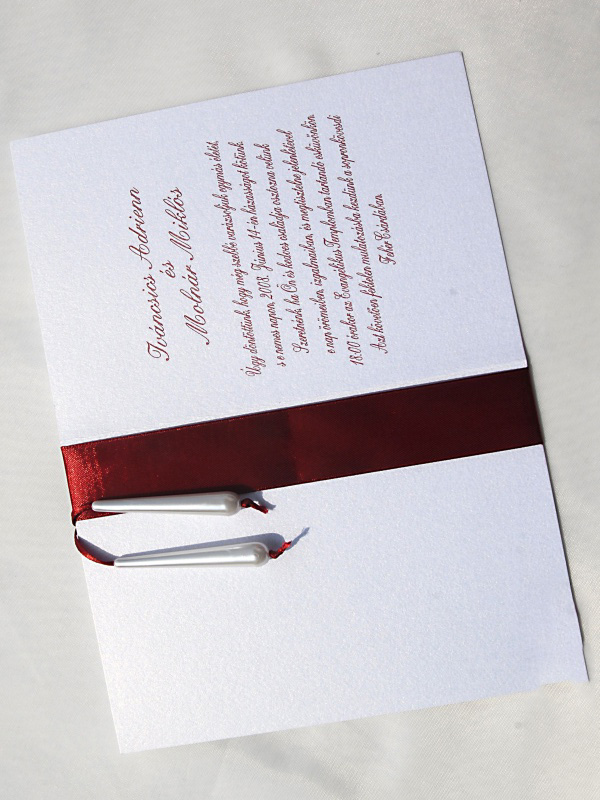 Iváncsics Adrienn
és
Molnár Miklós
Úgy döntöttünk, hogy még szebbé varázsoljuk egymás életét,
s e nemes napon, 2008. Június 14-én házasságot kötünk.
Szeretnénk, ha Ön és kedves családja osztozna velünk
e nap örömeiben, izgalmaiban, és megtisztelne jelenlétével
18.00 órakor az Evangélikus Templomban tartandó esküvőnkön.
Azt követően féktelen mulatozásba kezdünk a sopronkövesdi
Fehér Csárdában.